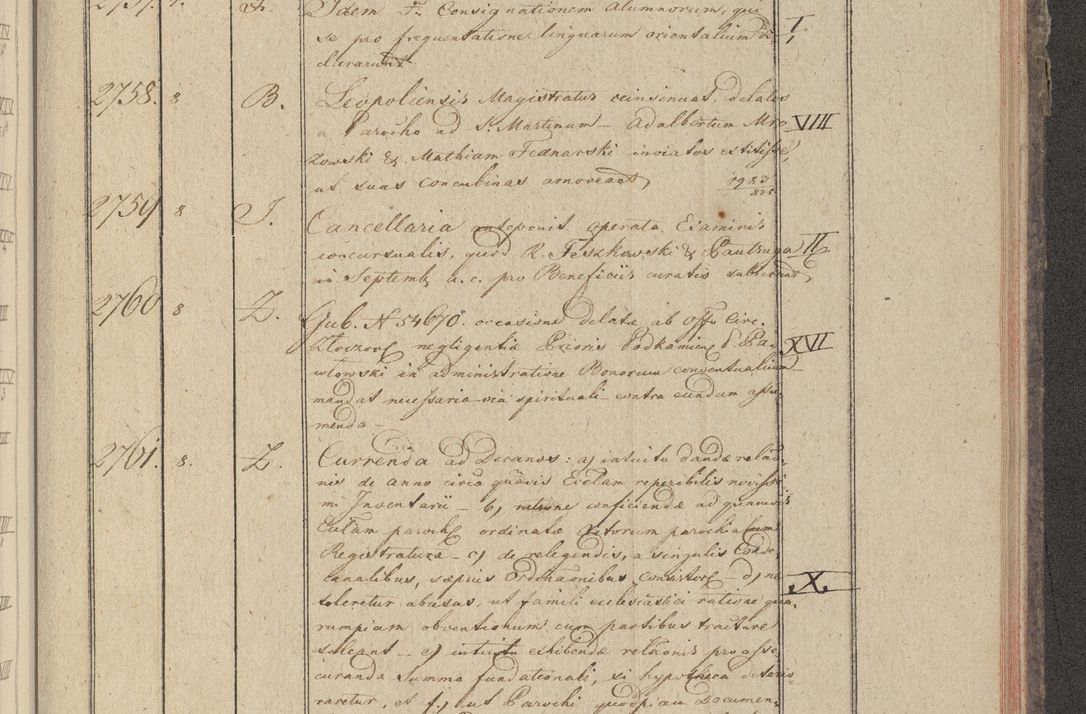 2757. A. Idem Consignationem Alumnorum, qui
se pro frequentatione linguarum orientalium de- I,
clararunt
2758. 8 B. Leopoliensis Magistratus reinsinuat, delatos
a Parocho ad S. Martinum – Adalbertum Mro VIII
zowski & Mathiam Fednarski inviatos extitisse,
ut suas concubinas amoveant,
2759 8 J. Cancellaria anteponit operata Examinis
concursualis, quod R. Feszkowski & II
in Septemb. a. c. pro Beneficiis curatis
2760 8 Z. Gub. N 54670. occasione delatæ ab Offo Circ.
negligentiæ Prioris XVI
wlowski in administratione Bonorum conventualium
mandat necessaria via spirituali contra eundem assu-
menda –
2761. 8. Z. Currenda ad Decanos: a) intuitu dandæ relao-
nis de anno circa quavis Ecclam reperibilis novissi
mi Inventarii – b) ratione conficiendæ ad
Ecclam ordinatæ parochialium
Registraturæ – c) de relegendis, a singulis
canalibus, sæpius Ordinaonibus – d) ne X.
toleretur abusus, ut famuli ecclesiastici ratione qua-
rumpiam obventionum cum partibus tractare
soleant – e) intuitu exhibendæ relaonis pro asse
curanda Summa fundationali, si hypotheca deterio-
raretur, et f.) ut Parochi quodpiam Documen-